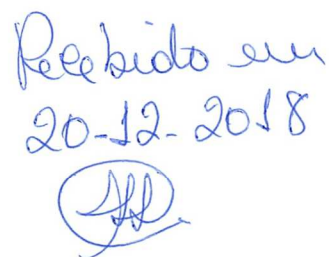 Recebido em
20-12-2018